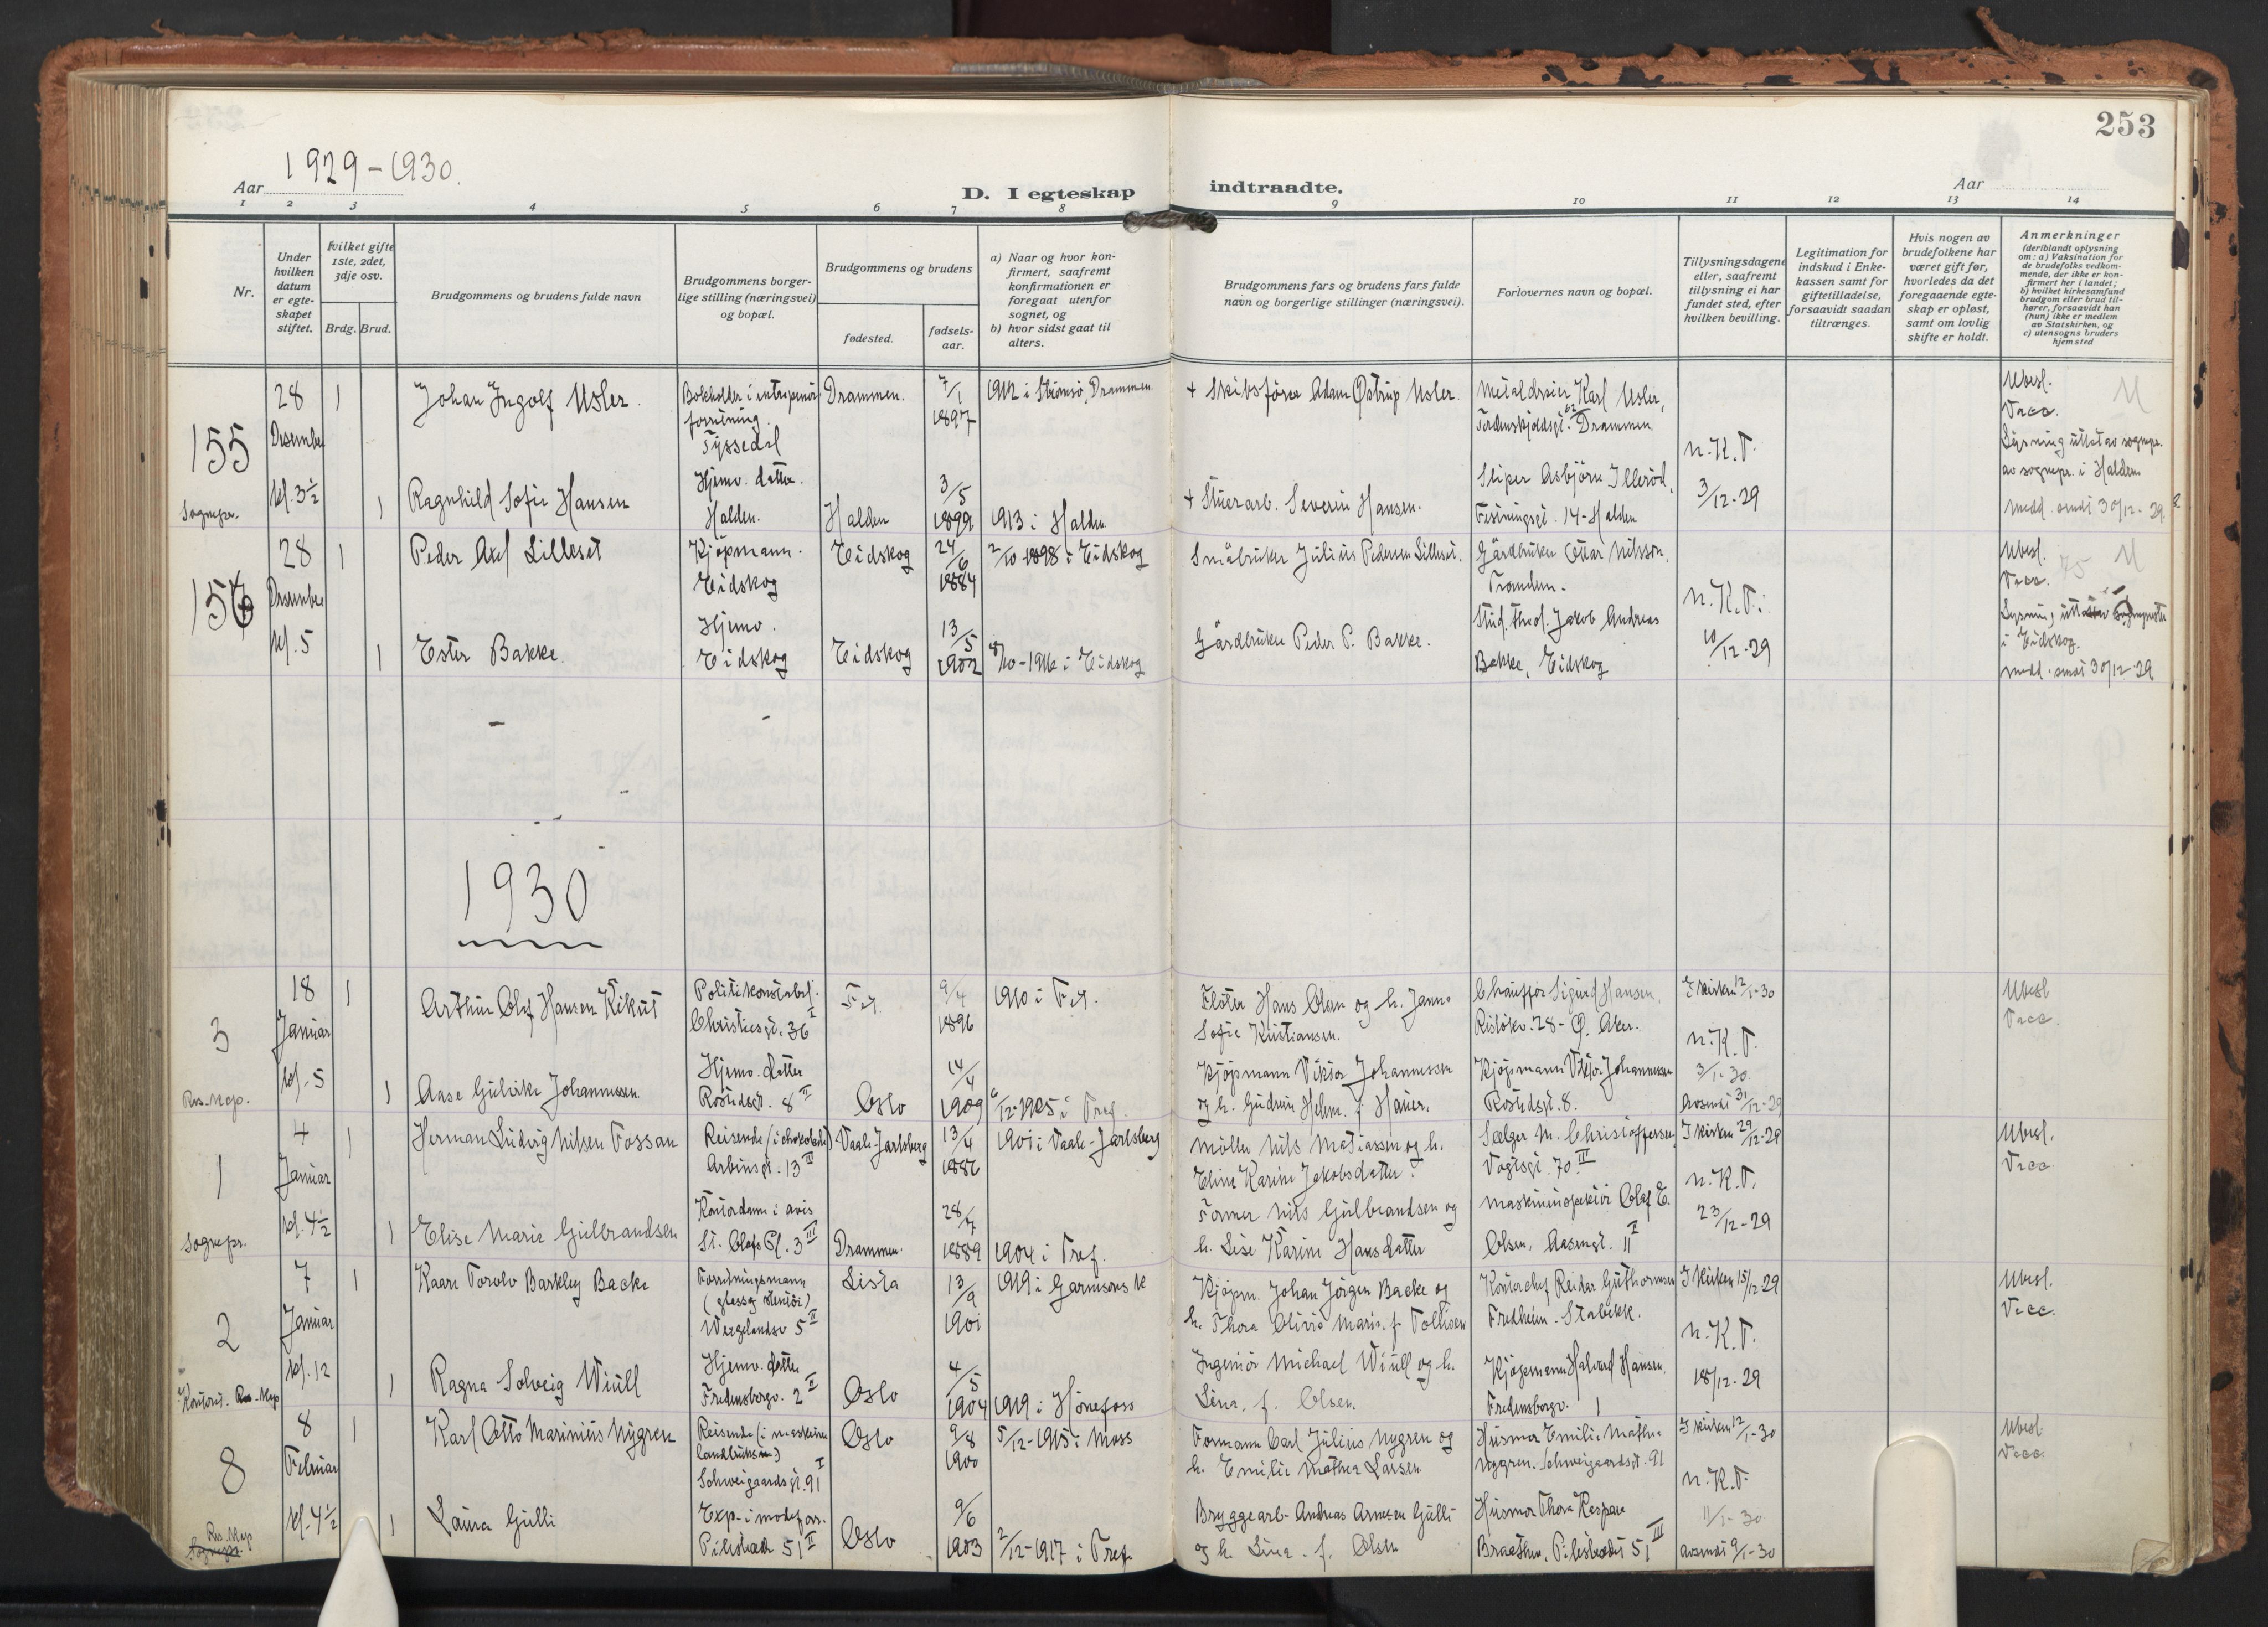 253
Aar 1929-1930.
D. I egteskap indtraadte.
Aar
1 2 3 4 5 6 7 8 9 10 11 12 13 14
Nr.
Under hvilken datum er egte- skapet stiftet.
hvilket gifte 1ste, 2det, 3dje osv.
Brdg. Brud.
Brudgommens og brudens fulde navn
Brudgommens borger- lige stilling (næringsvei) og bopæl.
Brudgommens og brudens
fødested.
fødsels- aar.
a) Naar og hvor kon- firmert, saafremt konfirmationen er foregaat utenfor sognet, og
b) hvor sidst gaat til alters.
Brudgommens fars og brudens fars fulde navn og borgerlige stillinger (næringsvei).
Forlovernes navn og bopæl.
Tillysningsdagene eller, saafremt tillysning ei har fundet sted, efter hvilken bevilling.
Legitimation for indskud i Enke- kassen samt for giftetilladelse, forsaavidt saadan tiltrænges.
Hvis nogen av brudefolkene har været gift før, hvorledes da det foregaaende egte- skap er opløst, samt om lovlig skifte er holdt.
Anmerkninger (deriblandt oplysning om: a) Vaksination for de brudefolks vedkom- mende, der ikke er kon- firmert her i landet; b) hvilket kirkesamfund brudgom eller brud til- hører, forsaavidt han (hun) ikke er medlem av Statskirken, og c) utensogns bruders hjemsted
155
Sognepr.
28 Desember kl. 3½
1 Johan Ingolf Usler.
Bokholder i entreprenör forretning. Tyssedal
Drammen.
7/1 1897
1912 i Strömsö, Drammen
+ Skibsförer Adam Østrup Usler.
Karl Usler, Tordenskjoldsgt. 62 Drammen
n. K. F. 3/12-29
Ubesl. Vacc.
av sognepr. i Halden
medd. sendt 30/12-29.
1 Ragnhild Sofie Hansen
Hjemv. datter. Halden.
Halden
3/5 1899
1913 i Halden
+ Stuerarb. Severin Hansen.
Sliper Asbjörn Illeröd, Festningsgt. 14 - Halden
156
28 Desember kl. 5
1 Peder Axel Lilleset
Kjöpmann. Eidskog
Eidskog
24/6 1884
2/10 1898 i Eidskog
Småbruker Julius Pedersen Lilleset.
Gårdbruker Ottar Nilsson. Tranden.
n. K. F. 10/12-29
Ubesl. Vacc.
i Eidskog.
medd. sendt 30/12-29
1 Ester Bakke.
Hjemv. Eidskog
Eidskog
13/5 1902
8/10-1916 i Eidskog
Gårdbruker Peder P. Bakke.
Stud. theol. Jakob Andreas Bakke, Eidskog
1930
3
Res. kap.
18 Januar kl. 5
1 Arthur Olaf Hansen Kikut
Politikonstabel. Christiesgt. 36 I
Fet.
9/4 1896
1910 i Fet.
Fløter Hans Olsen og h. Janna Sofie Kristiansen.
Chauffør Sigurd Hansen, Risløkv. 28 - Ø. Aker.
I kirken 12/1-30
n. K. F. 3/1-30
Avsendt 31/12-29
Ubesl. Vacc.
1 Aase Gulvike Johannessen
Hjemv. datter Rostedsgt. 8 II
Oslo
14/4 1909
6/12-1925 i Tref.
Kjöpmann Viktor Johannessen og h. Gudrun Helm. f. Hauer.
Kjöpmann Viktor Johannessen Rostedsgt. 8.
1
Sognepr.
4 Januar kl. 4½
1 Herman Ludvig Nilsen Fossan
Reisende (i chokolade) Arbinsgt. 13 III
Vaale - Jarlsberg
13/4 1886
1901 i Vaale - Jarlsberg
Møller Nils Matiassen og h. Eline Karine Jakobsdatter.
Sælger M. Christoffersen, Vogtsgt. 70 III
I kirken 29/12-29
n. K. F. 23/12-29
Ubesl. Vacc.
1 Elise Marie Gulbrandsen
Kontordame i avis St. Olafs Pl. 3 III
Drammen.
28/7 1889
1904 i Tref.
Former Nils Gulbrandsen og h. Lise Karine Hansdatter
Maskininspektör Olaf E. Olsen, Aasengt. 11 I
2
Kontorist. Res. kap
7 Januar kl. 12
1 Kaare Torolv Barkley Backe
Forretningsmann (glass og stentöi) Wergelandsv 5 II
Lista
13/9 1901
1919 i Garnisons k
Kjöpm. Johan Jörgen Backe og h. Thora Olivia Marie f. Tollisen
Kontorchef Reidar Guthormsen Fredheim - Stabekk.
I kirken 15/12-29
n. K. F. 18/12-29
Ubesl. Vacc.
1 Ragna Solveig Wiull
Hjemv. datter Fredensborgv. 2 II
Oslo
4/5 1904
1919 i Hönefoss
Ingeniör Michael Wiull og h. Lina, f. Olsen.
Kjöpmann Halvard Hansen. Fredensborgv. 1
8
Res. kap Sognepr.
8 Februar kl. 4½
1 Karl Otto Marinius Nygren
Reisende (i maskiner landbruks) Schweigaardsgt. 91 I
Oslo
9/8 1900
5/12-1915 i Moss
Formann Carl Julius Nygren og h. Emilie Mathea Larsen
Husmor Emilie Mathea Nygren. Schweigaardsgt. 91
I kirken 12/1-30
n. K. F. 11/1-30
avsendt 9/1-30
Ubesl. Vacc.
1 Laura Gulli
Exp. i modeforr. Pilestræde 51 II
Oslo
9/6 1903
2/12-1917 i Tref.
Bryggearb. Andreas Arnesen Gulli og h. Lina - f. Olsen
Husmor Thora Kaspara Braathen, Pilestrædet 51 III